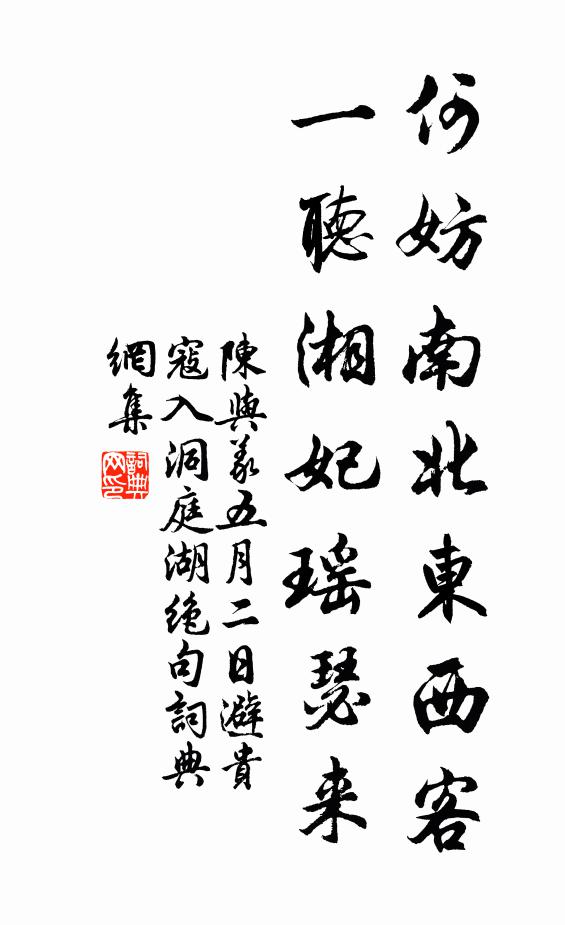 何妨南北東西客
一聽湘妃瑶瑟来
陳與義五月二日避貴
寇入洞庭湖绝句詞典
網集
詞典网印